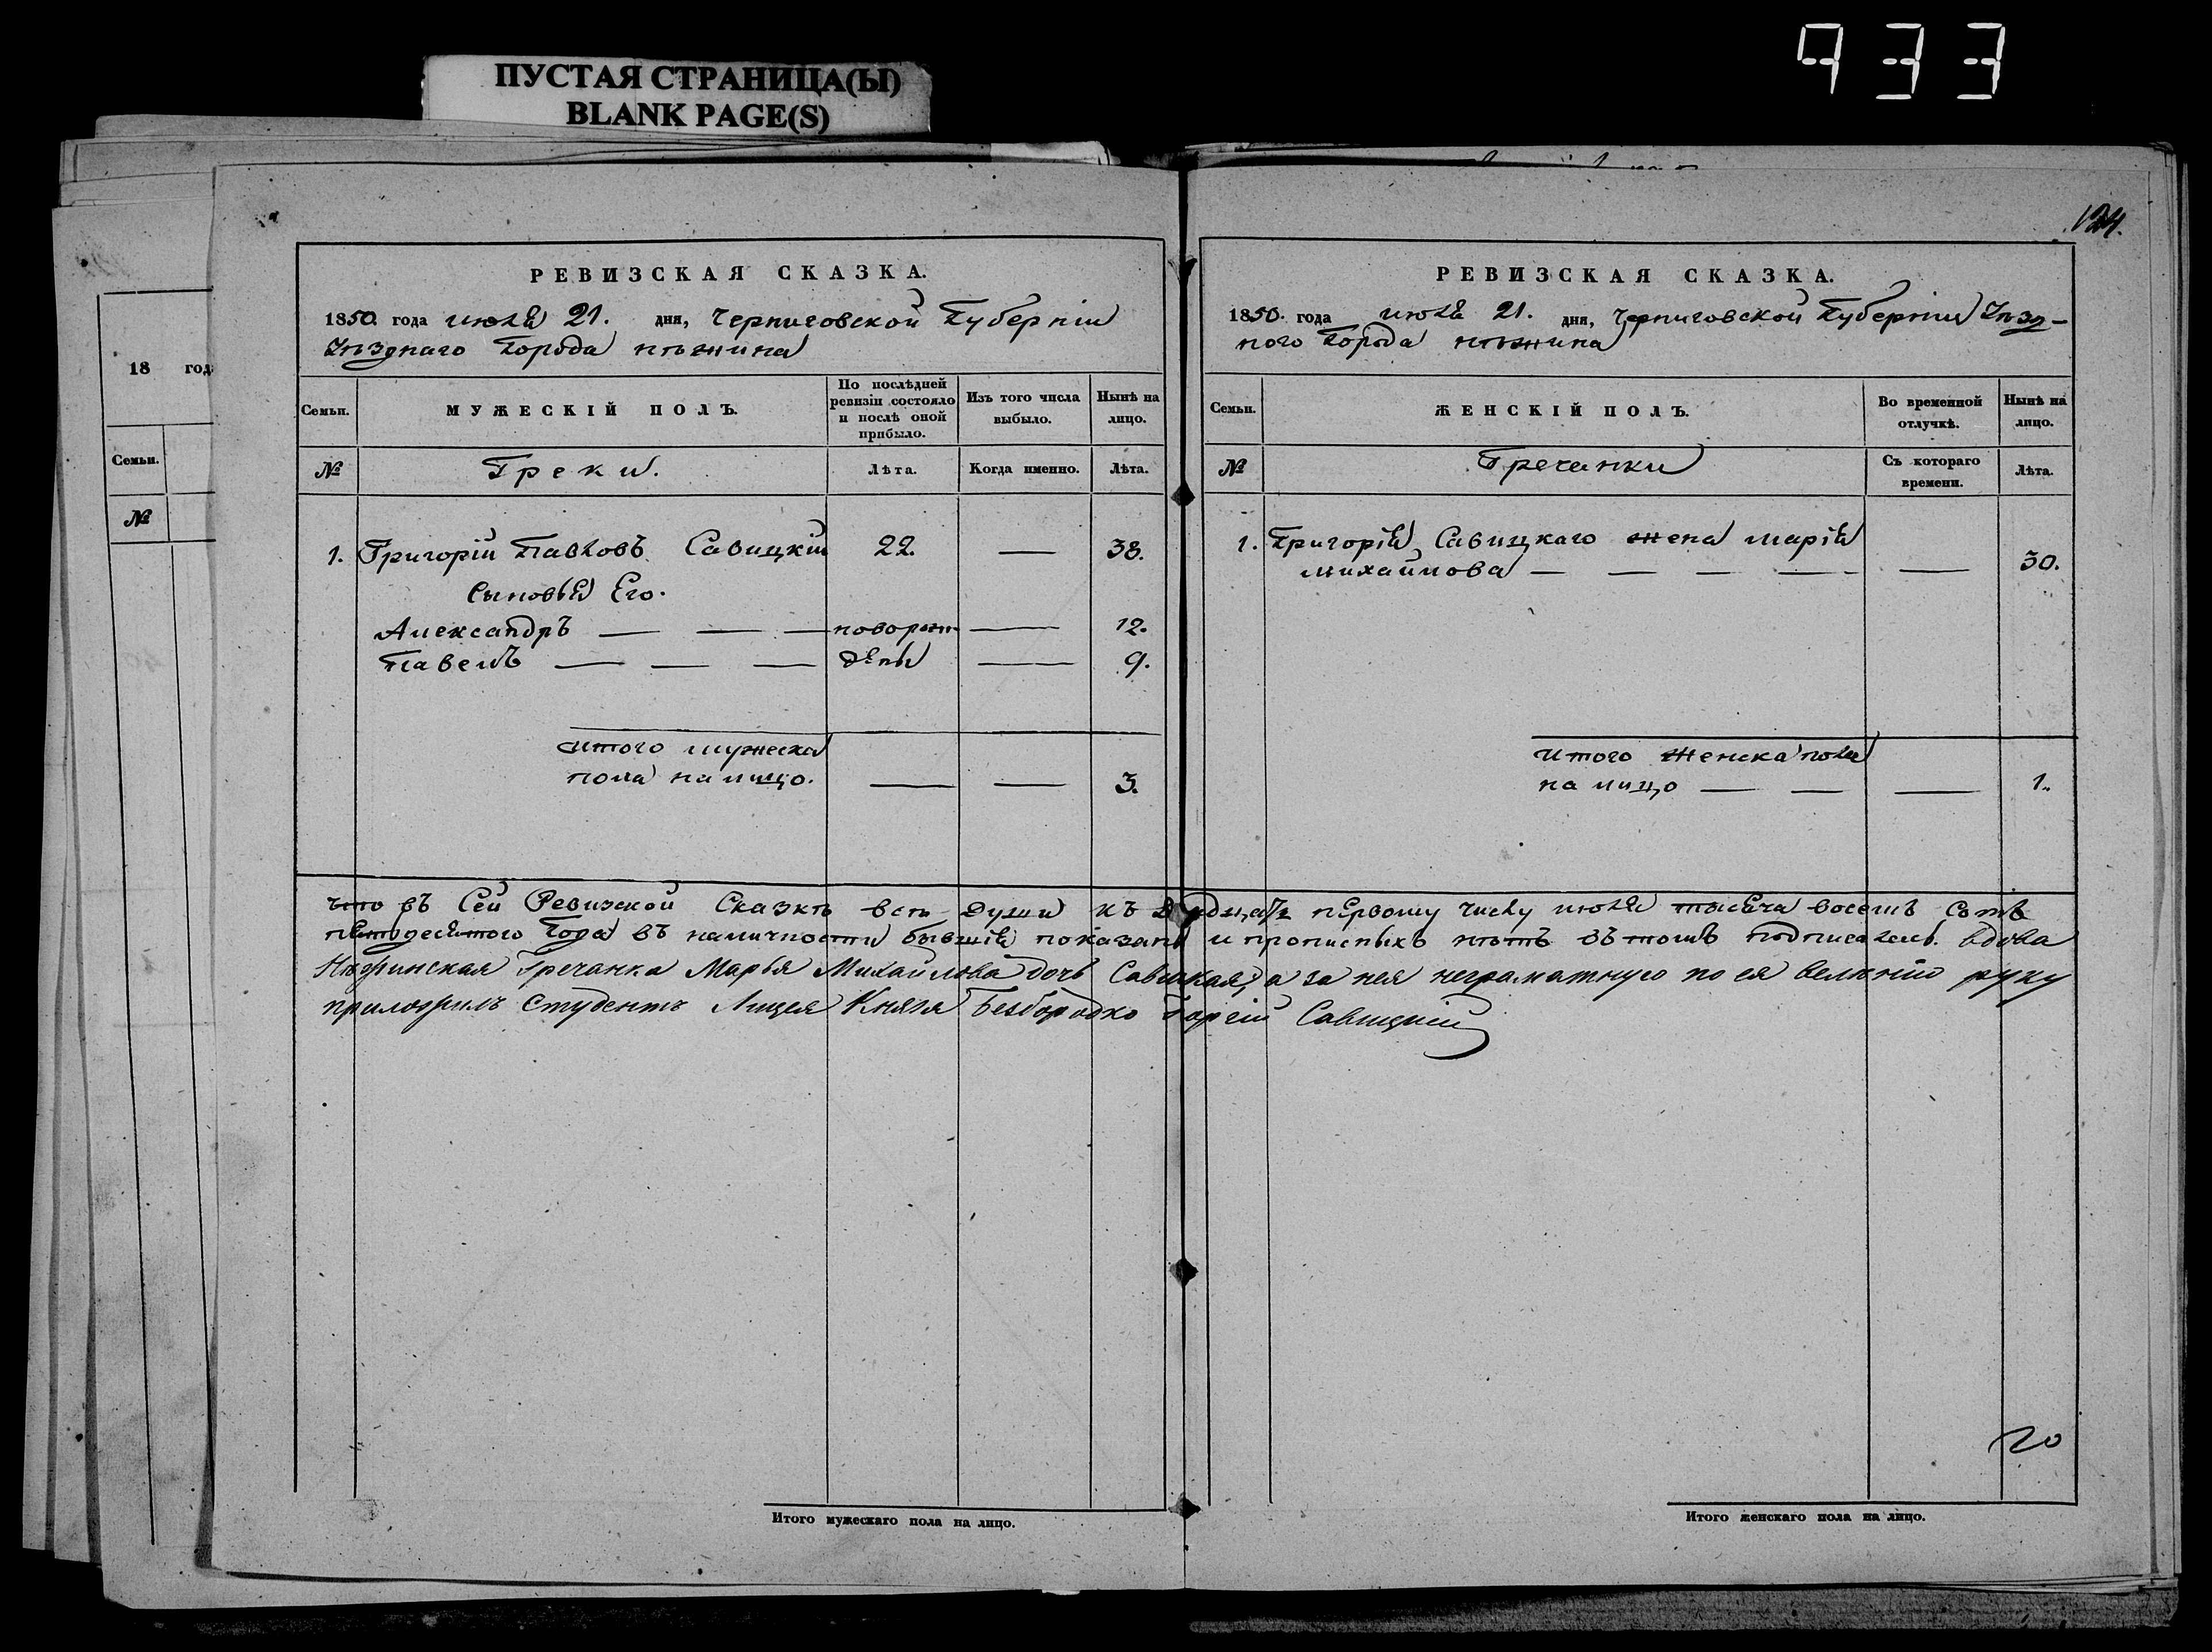 933
ПУСТАЯ СТРАНИЦА(Ы)
BLANK PAGE(S)
124.
18 год
Семьи.
№
РЕВИЗСКАЯ СКАЗКА.
1850. года июля 21. дня, Черниговской Губерніи
Уѣзднаго Города Нѣжина
Семьи.
МУЖЕСКІЙ ПОЛЪ.
По послѣдней ревизіи состояло и послѣ оной прибыло.
Изъ того числа выбыло.
Нынѣ на лицо.
№
Греки.
Лѣта.
Когда именно.
Лѣта.
1. Григорій Павловъ Савицкій 22. — 38.
Сыновья Его.
Александръ — — — новорож- — 12.
Павелъ — — — дены — 9.
Итого мужеска
пола на лицо. — — 3.
РЕВИЗСКАЯ СКАЗКА.
1850. года июля 21. дня, Черниговской Губерніи Уѣзд-
ного Города Нѣжина
Семьи.
ЖЕНСКІЙ ПОЛЪ.
Во временной отлучкѣ.
Нынѣ на лицо.
№
Гречанки
Съ котораго времени.
Лѣта.
1. Григорія Савицкаго жена Марія
Михайлова — — — — — — 30.
Итого Женска пола
на лицо — — — 1.
что въ Сей Ревизской Сказкѣ всѣ души къ Двадцать первому числу июля тысяча восемь Сотъ
пятодесятого Года въ наличности бывшія показаны и прописныхъ нѣтъ въ томъ подписалсь. Вдова
Нѣжинская Гречанка Марья Михайлова дочь Савицкая, а за нея неграматную по ея велѣнію руку
приложилъ Студентъ Лицея Князя Безбородко Савицкій
20
Итого мужескаго пола на лицо.
Итого женскаго пола на лицо.